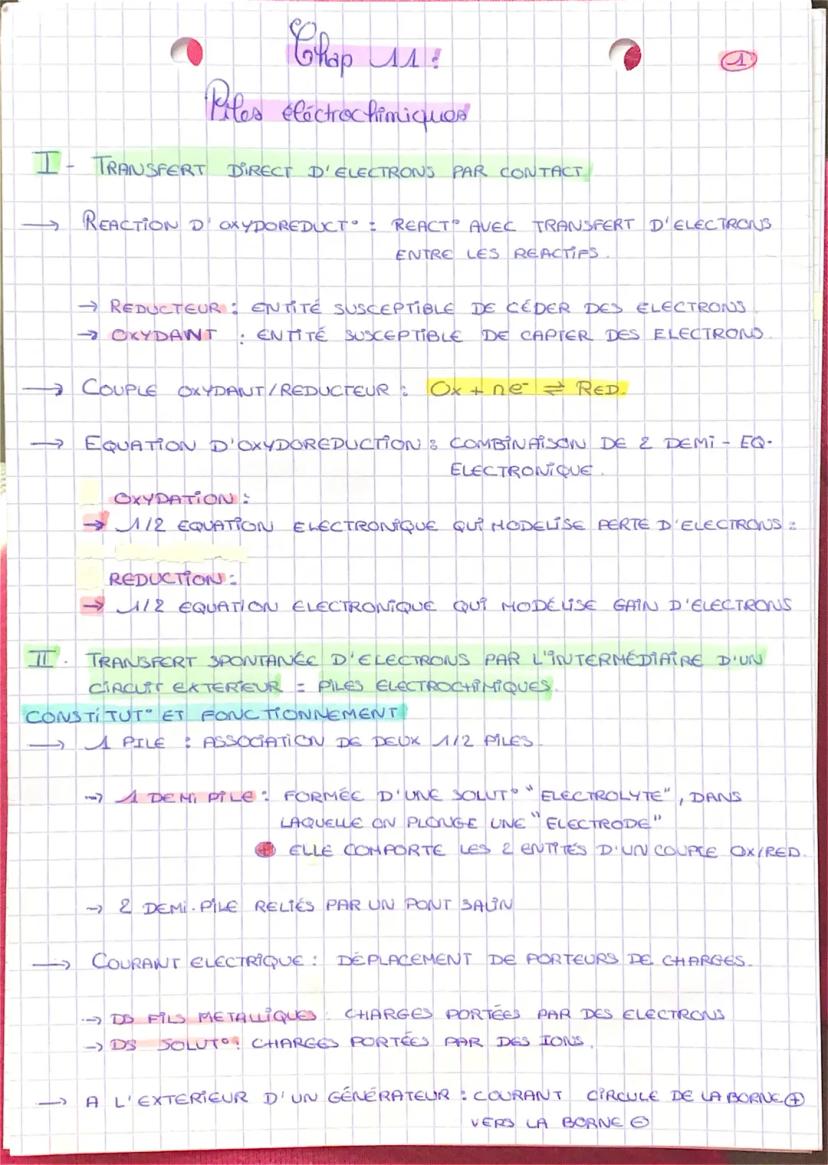 Chap 11 :
1
Piles éléctrochimiques
I - TRANSFERT DIRECT D'ELECTRONS PAR CONTACT
→ REACTION D'OXYDOREDUCT° : REACT° AVEC TRANSFERT D'ELECTRONS
ENTRE LES REACTIFS.
→ REDUCTEUR : ENTITÉ SUSCEPTIBLE DE CÉDER DES ELECTRONS.
→ OXYDANT : ENTITÉ SUSCEPTIBLE DE CAPTER DES ELECTRONS.
→ COUPLE OXYDANT/REDUCTEUR : Ox + ne⁻ ⇌ RED.
→ EQUATION D'OXYDOREDUCTION : COMBINAISON DE 2 DEMI-EQ.
ELECTRONIQUE.
OXYDATION :
→ 1/2 EQUATION ELECTRONIQUE QUI MODELISE PERTE D'ELECTRONS :
REDUCTION :
→ 1/2 EQUATION ELECTRONIQUE QUI MODELISE GAIN D'ELECTRONS
II. TRANSFERT SPONTANÉE D'ELECTRONS PAR L'INTERMÉDIAIRE D'UN
CIRCUIT EXTERIEUR = PILES ELECTROCHIMIQUES.
CONSTITUT° ET FONCTIONNEMENT
→ 1 PILE : ASSOCIATION DE DEUX 1/2 PILES.
→ 1 DEMI PILE : FORMÉE D'UNE SOLUT° "ELECTROLYTE", DANS
LAQUELLE ON PLONGE UNE "ELECTRODE"
+ ELLE COMPORTE LES 2 ENTITÉS D'UN COUPLE OX/RED.
→ 2 DEMI-PILE RELIÉS PAR UN PONT SALIN
→ COURANT ELECTRIQUE : DÉPLACEMENT DE PORTEURS DE CHARGES.
→ DS FILS METALLIQUES : CHARGES PORTÉES PAR DES ELECTRONS
→ DS SOLUT° : CHARGES PORTÉES PAR DES IONS.
→ A L'EXTERIEUR D'UN GÉNÉRATEUR : COURANT CIRCULE DE LA BORNE ⊕
VERS LA BORNE ⊖